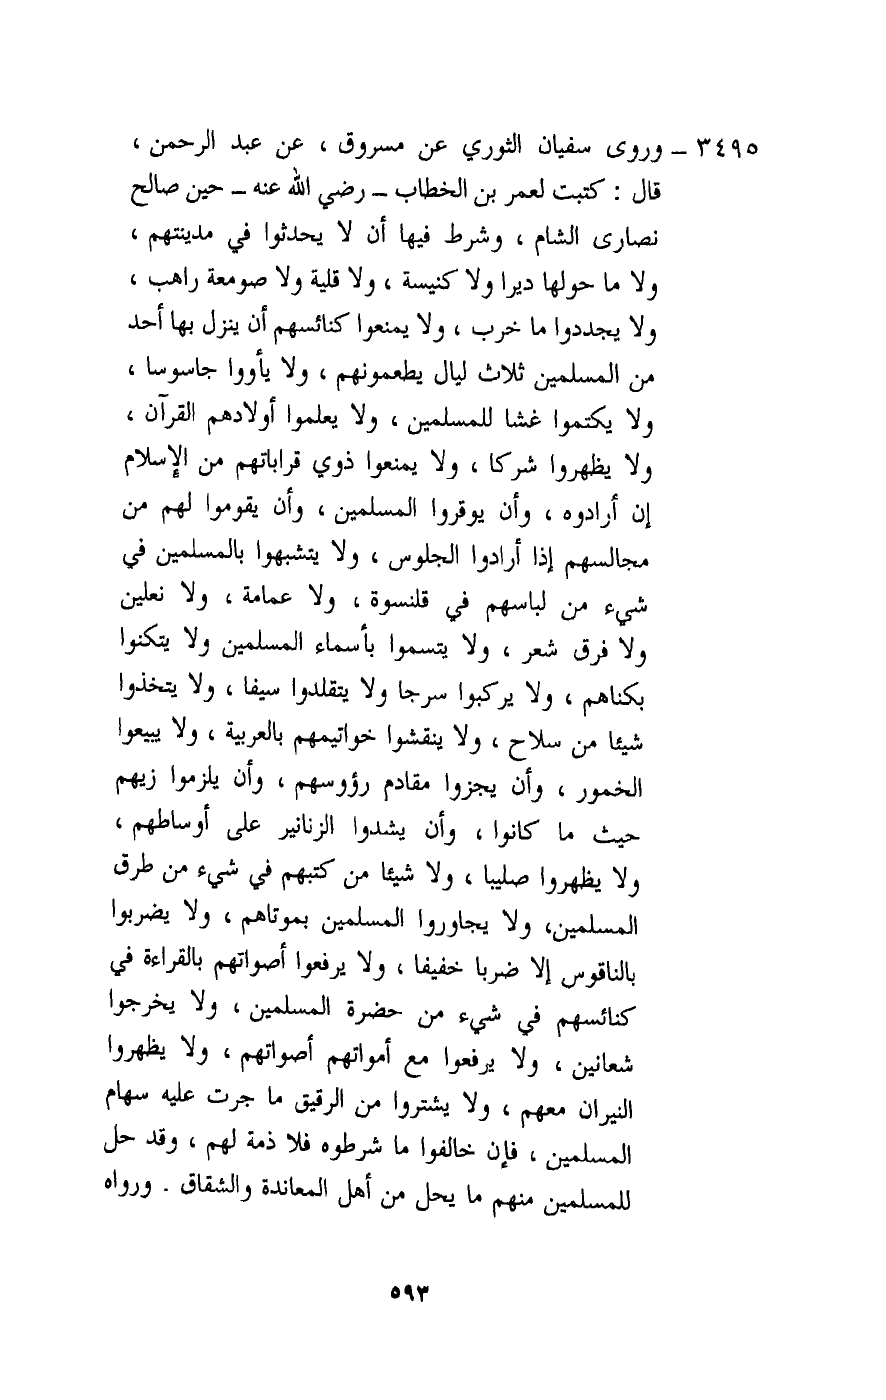 ٣٤٩٥ ــ وروى سفيان الثوري عن مسروق ، عن عبد الرحمن ،
قال : كتبت لعمر بن الخطاب ــ رضي الله عنه ــ حين صالح
نصارى الشام ، وشرط فيها أن لا يحدثوا في مدينتهم ،
ولا ما حولها ديرا ولا كنيسة ، ولا قلية ولا صومعة راهب ،
ولا يجددوا ما خرب ، ولا يمنعوا كنائسهم أن ينزل بها أحد
من المسلمين ثلاث ليال يطعمونهم ، ولا يأووا جاسوسا ،
ولا يكتموا غشا للمسلمين ، ولا يعلموا أولادهم القرآن ،
ولا يظهروا شركا ، ولا يمنعوا ذوي قراباتهم من الإسلام
إن أرادوه ، وأن يوقروا المسلمين ، وأن يقوموا لهم من
مجالسهم إذا أرادوا الجلوس ، ولا يتشبهوا بالمسلمين في
شيء من لباسهم في قلنسوة ، ولا عمامة ، ولا نعلين
ولا فرق شعر ، ولا يتسموا بأسماء المسلمين ولا يتكنوا
بكناهم ، ولا يركبوا سرجا ولا يتقلدوا سيفا ، ولا يتخذوا
شيئا من سلاح ، ولا ينقشوا خواتيمهم بالعربية ، ولا يبيعوا
الخمور ، وأن يجزوا مقادم رؤوسهم ، وأن يلزموا زيهم
حيث ما كانوا ، وأن يشدوا الزنانير على أوساطهم ،
ولا يظهروا صليبا ، ولا شيئا من كتبهم في شيء من طرق
المسلمين، ولا يجاوروا المسلمين بموتاهم ، ولا يضربوا
بالناقوس إلا ضربا خفيفا ، ولا يرفعوا أصواتهم بالقراءة في
كنائسهم في شيء من حضرة المسلمين ، ولا يخرجوا
شعانين ، ولا يرفعوا مع أمواتهم أصواتهم ، ولا يظهروا
النيران معهم ، ولا يشتروا من الرقيق ما جرت عليه سهام
المسلمين ، فإن خالفوا ما شرطوه فلا ذمة لهم ، وقد حل
للمسلمين منهم ما يحل من أهل المعاندة والشقاق . ورواه
٥٩٣